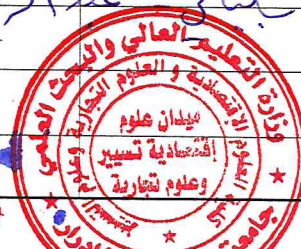 وزارة التعليم العالي والبحث العلمي
كلية العلوم الاقتصادية و العلوم التجارية وعلوم التسيير
ميدان علوم
إقتصادية تسيير
وعلوم تجارية
جامعة